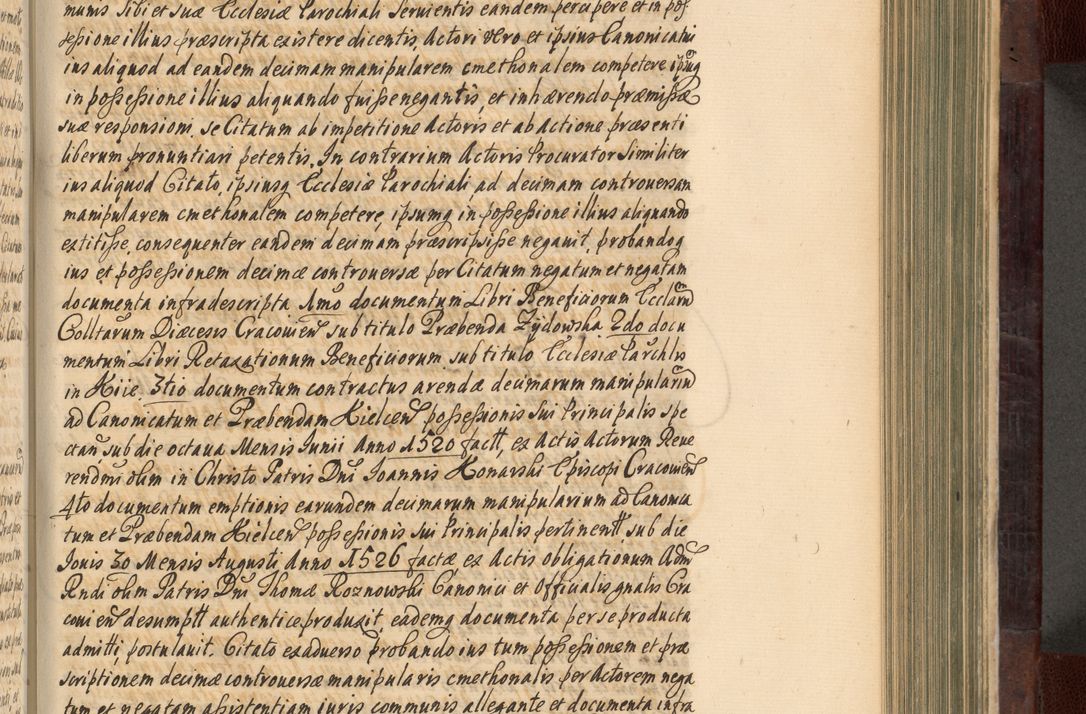 munis sibi et suæ Ecclesiæ Parochiali servientis eandem percipere et in pos
sessione illius præscripta existere dicentis, Actori vero et ipsius Canonicatui
ius aliquod ad eandem decimam manipularem cmethonalem competere ipsuq
in possessione illius aliquando fuisse negantis, et inhærendo præmissæ
suæ responsioni, se Citatum ab impetitione Actoris et ab actione præsenti
liberum pronuntiari petentis. In contrarium Actoris Procurator similiter
ius aliquod Citato, ipsiusq Ecclesiæ Parochiali, ad decimam controversam
manipularem cmethonalem competere, ipsumq in possessione illius aliquando
extitisse, consequenter eandem decimam præscripsisse negavit, probandoq
ius et possessionem decimæ controversæ per Citatum negatum et negatam
documenta infradescripta 1mo documentum Libri Beneficiorum Ecclarū
Colltarum Diæcesis Cracovien̄ sub titulo Præbenda Zydowska 2do docu
mentum Libri Retaxationum Beneficiorum sub titulo Ecclesiæ Parchlis
in Kiie. 3tio documentum contractus arendæ decimarum manipulariū
ad Canonicatum et Præbendam Kielcen̄ possessionis sui Principalis spe
ctan̄ sub die octava Mensis Iunii Anno 1520 factt, ex Actis Actorum Reve
rendmi olim in Christo Patris Dnī Ioannis Konarski Episcopi Cracovien̄
4to documentum emptionis earundem decimarum manipularium ad Canonica
tum et Præbendam Kielcen̄ possessionis sui Principalis pertinentt sub die
Iovis 30 Mensis Augusti Anno 1526 factæ ex Actis obligationum Adm̄
Rndi olim Patris Dnī Thomæ Roznowski Canonici et Officialis gnalis Cra
covien̄ desumptt authentice produxit, eademq documenta per se producta
admitti, postulavit. Citato ex adverso probando ius tum possessionem et præ
scriptionem decimæ controversæ manipularis cmethonalis per Actorem nega
tum et negatam assistentiam iuris communis allegante et documenta infra